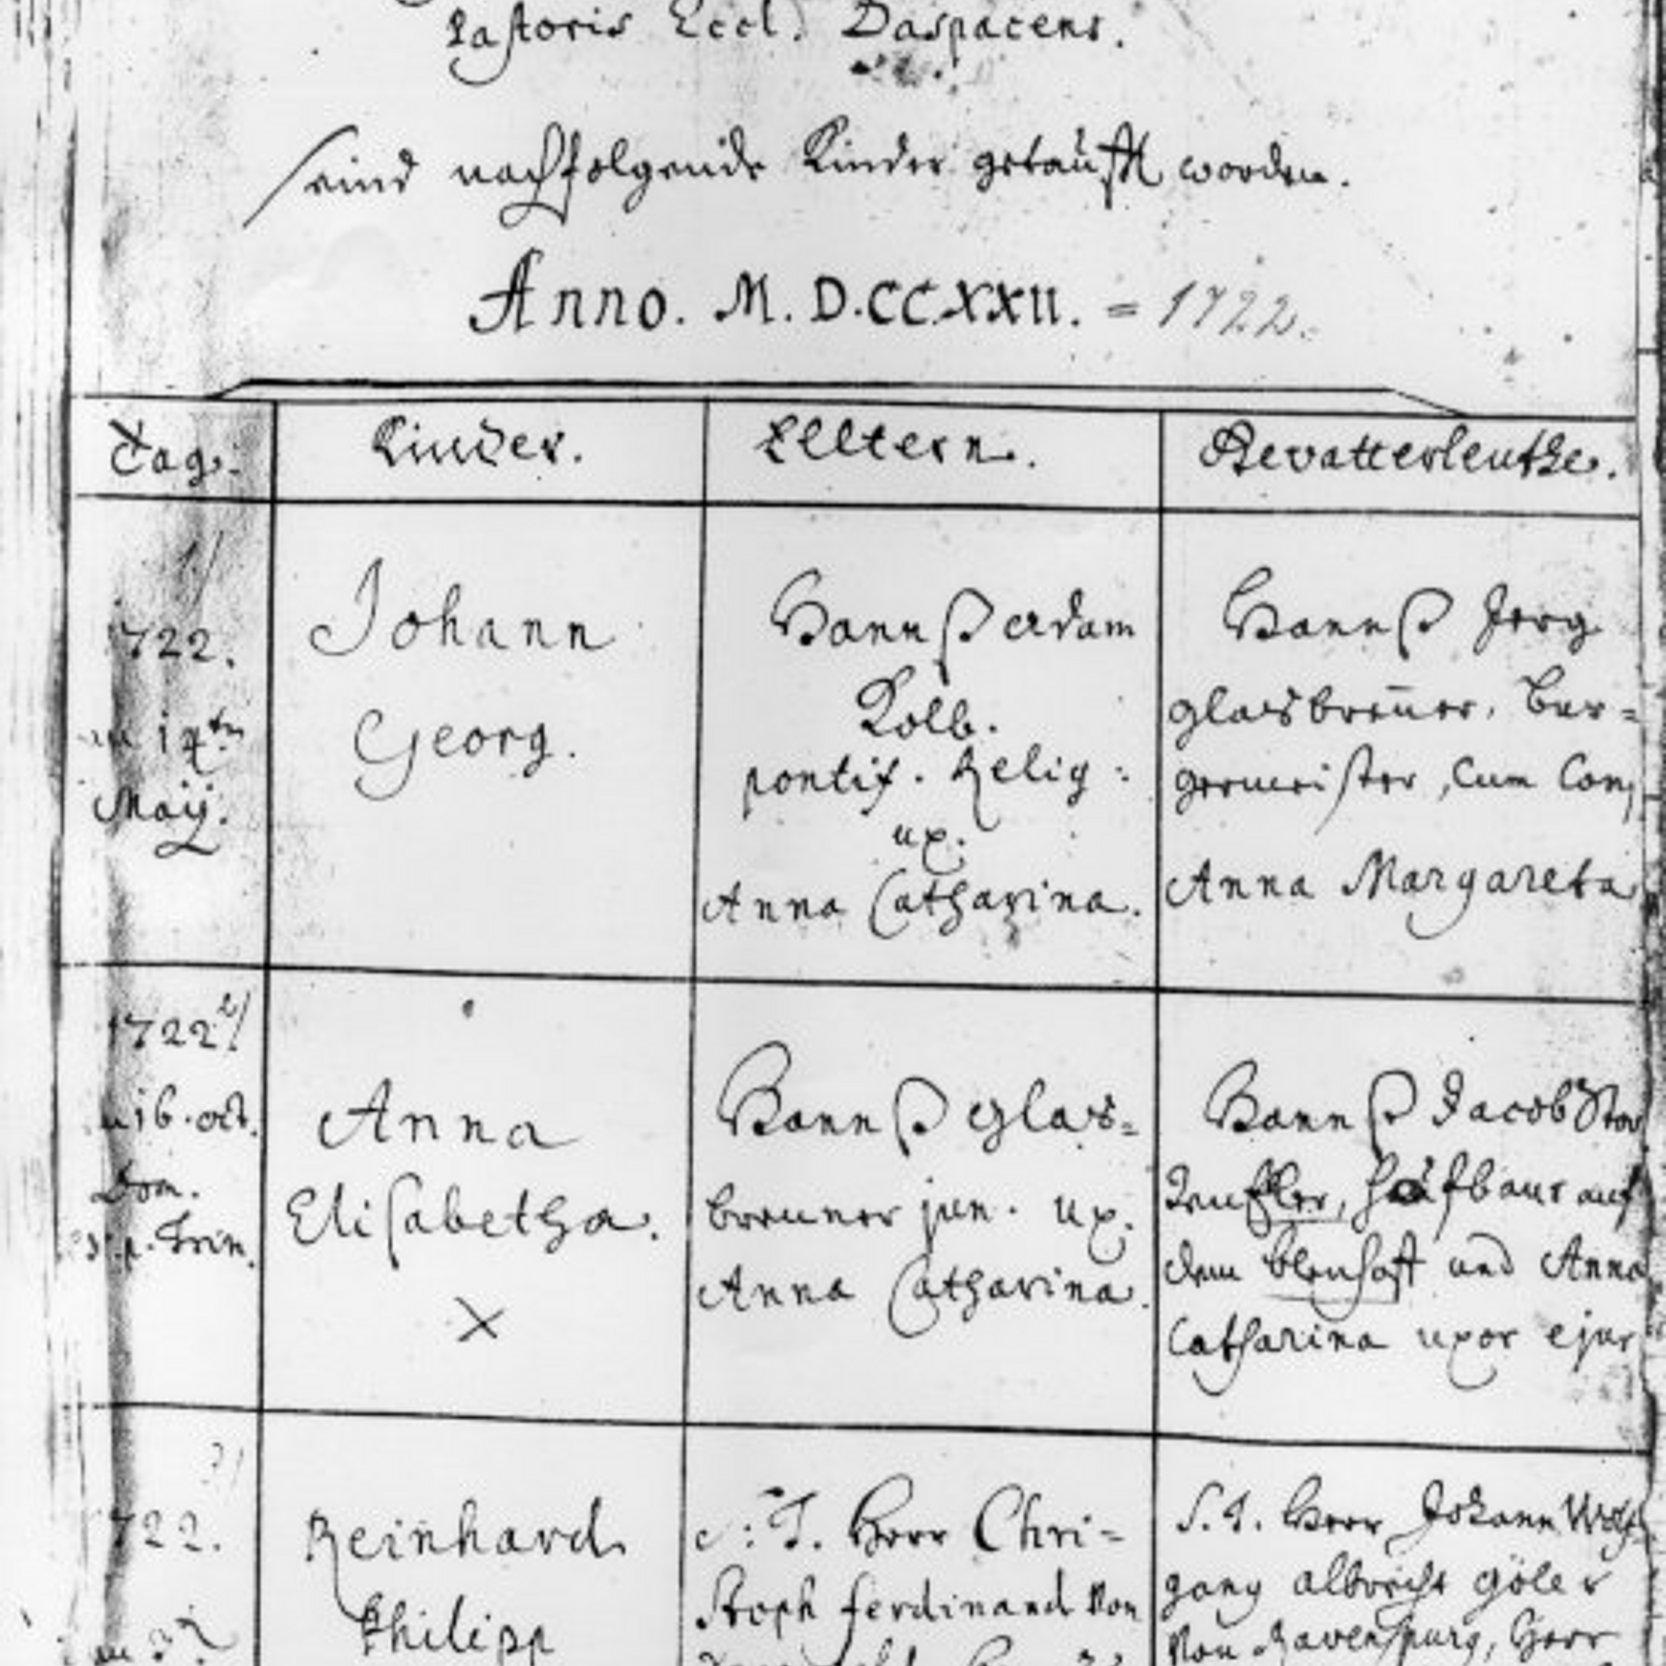 Pastoris Eccl. Daspacens.
seind nachfolgende Kinder getaufft worden.
Anno. M. D. CCXXII. = 1722.
Tag. Kinder. Elltern. Gevatterleuthe.
1/
1722.
Maij.
Johann
Georg.
Hannß Adam
Kolb.
pontif. Relig:
ux.
Anna Catharina.
Hannß Jerg
Glasbreñer, Bur=
germeister, cum Conj
Anna Margareta
1722 2/
16. oct.
Dom.
p. Trin.
Anna
Elisabetha.
X
Hannß Glas=
brenner jun. ux.
Anna Catharina.
Hannß Jacob
auf
dem und Anna
Catharina uxor ejus
3/
1722.
Reinhard
Philipp
S. T. Herr Chri=
stoph Ferdinand von
S. T. Herr Johann Wolf
gang Albrecht Göler
von Ravenspurg, Herr